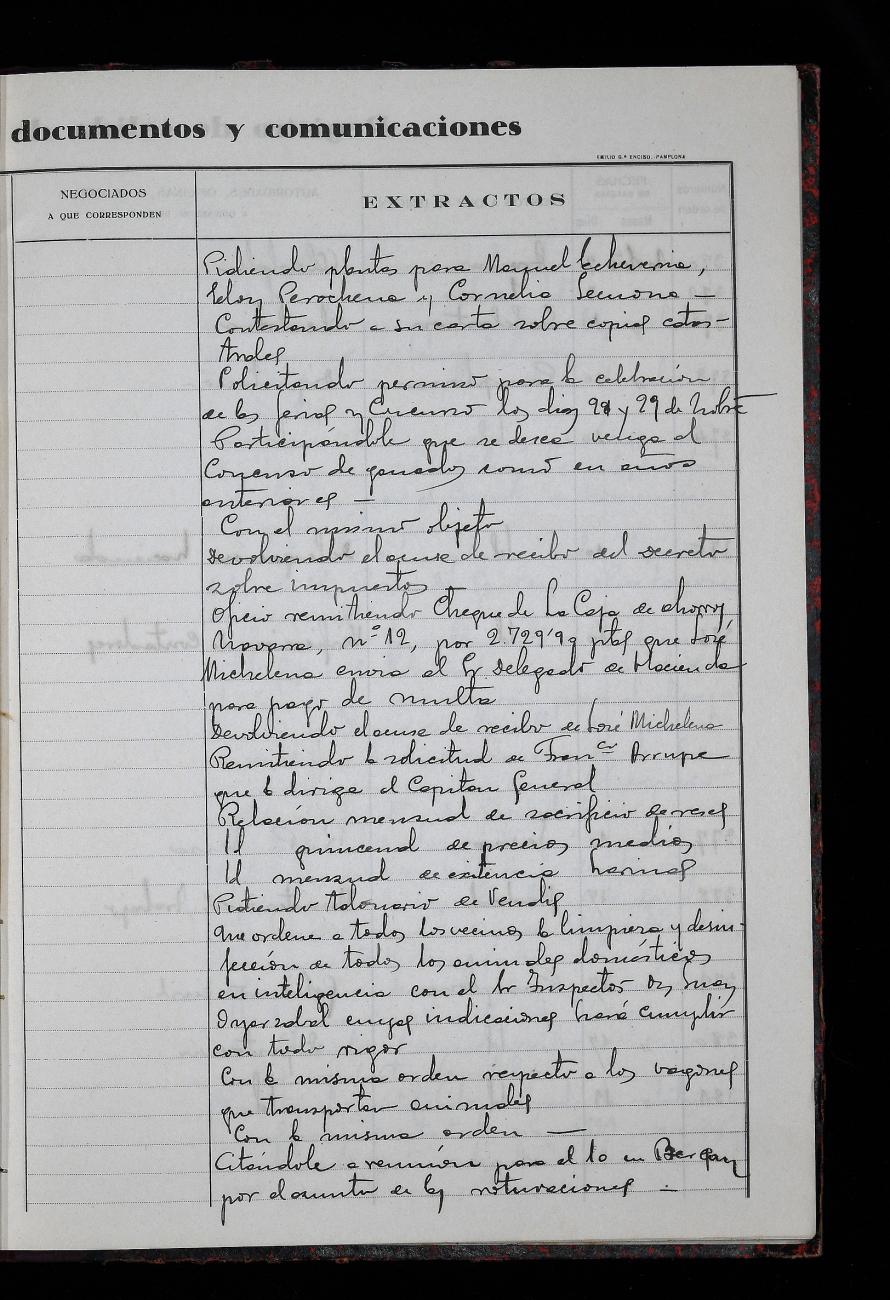 documentos y comunicaciones
EMILIO G.ª ENCISO. PAMPLONA
NEGOCIADOS
A QUE CORRESPONDEN
EXTRACTOS
Pidiendo plantas para Manuel Echeverria,
Eloy Perochena y Cornelio Lecuona —
Contestando a su carta sobre copias catas-
trales
Solicitando permiso para la celebración
de las ferias y Concurso los dias 28 y 29 de Nobre
Participándole que se desea venga al
Concurso de ganados como en años
anteriores —
Con el mismo objeto
Devolviendo el acuse de recibo del Decreto
sobre impuestos
Oficio remitiendo Cheque de La Caja de ahorros
Navarra, nº 12, por 2.729'99 ptas que José
Michelena envia al Sr Delegado de Hacienda
para pago de multa
Devolviendo el acuse de recibo de José Michelena
Remitiendo la solicitud de Franco Arrupe
que la dirige al Capitan General
Relación mensual de sacrificio de reses
Id quincenal de precios medios
Id mensual de existencia harinas
Pidiendo talonario de Vendis
Que ordene a todos los vecinos la limpieza y desin-
fección de todos los animales domésticos
en inteligencia con el Sr Inspector Dn Juan
Oyarzabal cuyas indicaciones hará cumplir
con todo rigor
Con la misma orden respecto a los vagones
que transportan animales
Con la misma orden —
Citándole a reunión para el 10 en
por el asunto de las roturaciones —